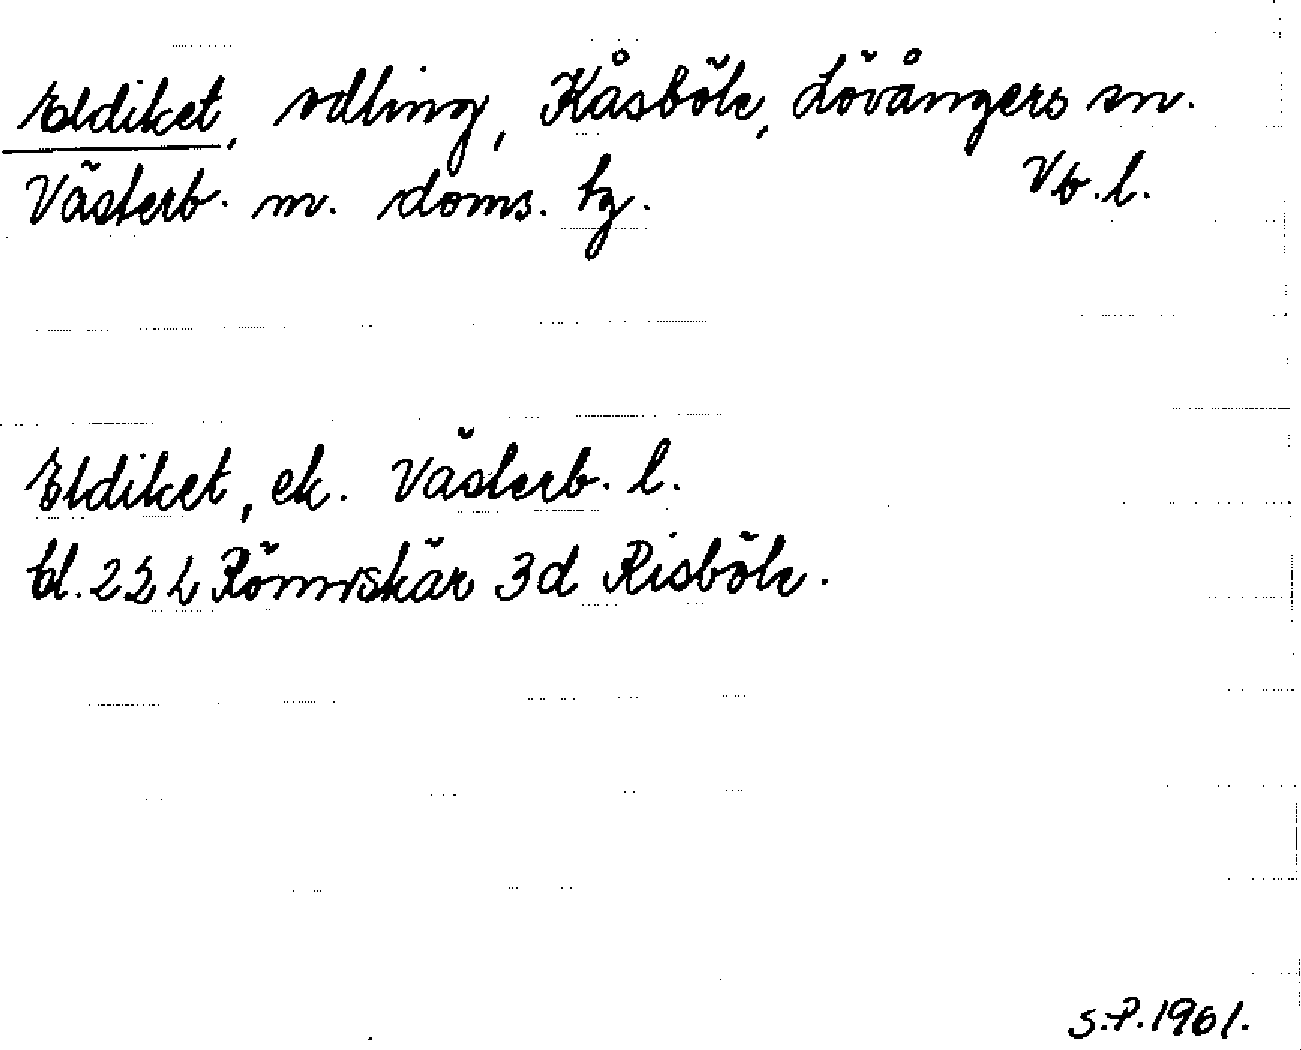 Eldiket, odling, Kåsböle, Lövångers sn.
Västerb. m. doms. tg. Vb. l.
Eldiket, ek. Västerb. l.
bl. 22 L Rönnskär 3d Risböle.
S.P. 1961.